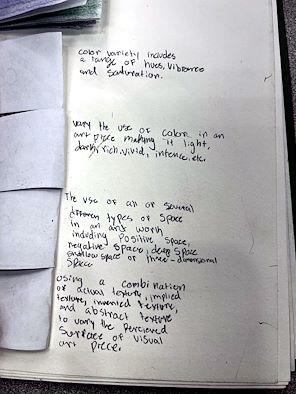 color variety includes
a range of hues, vibrance
and saduration.
vary the use of color in an
art piece making it light,
dark, rich, vivid, intence, etc.
The use of all or several
differen types of space
in an art work,
including Positive space,
negative space, deep space
shallow space or three-dimensional
space
using a combination
of actual texture, implied
texture, invented texture,
and abstract texture
to vary the percieved
surface of visual
art piece.